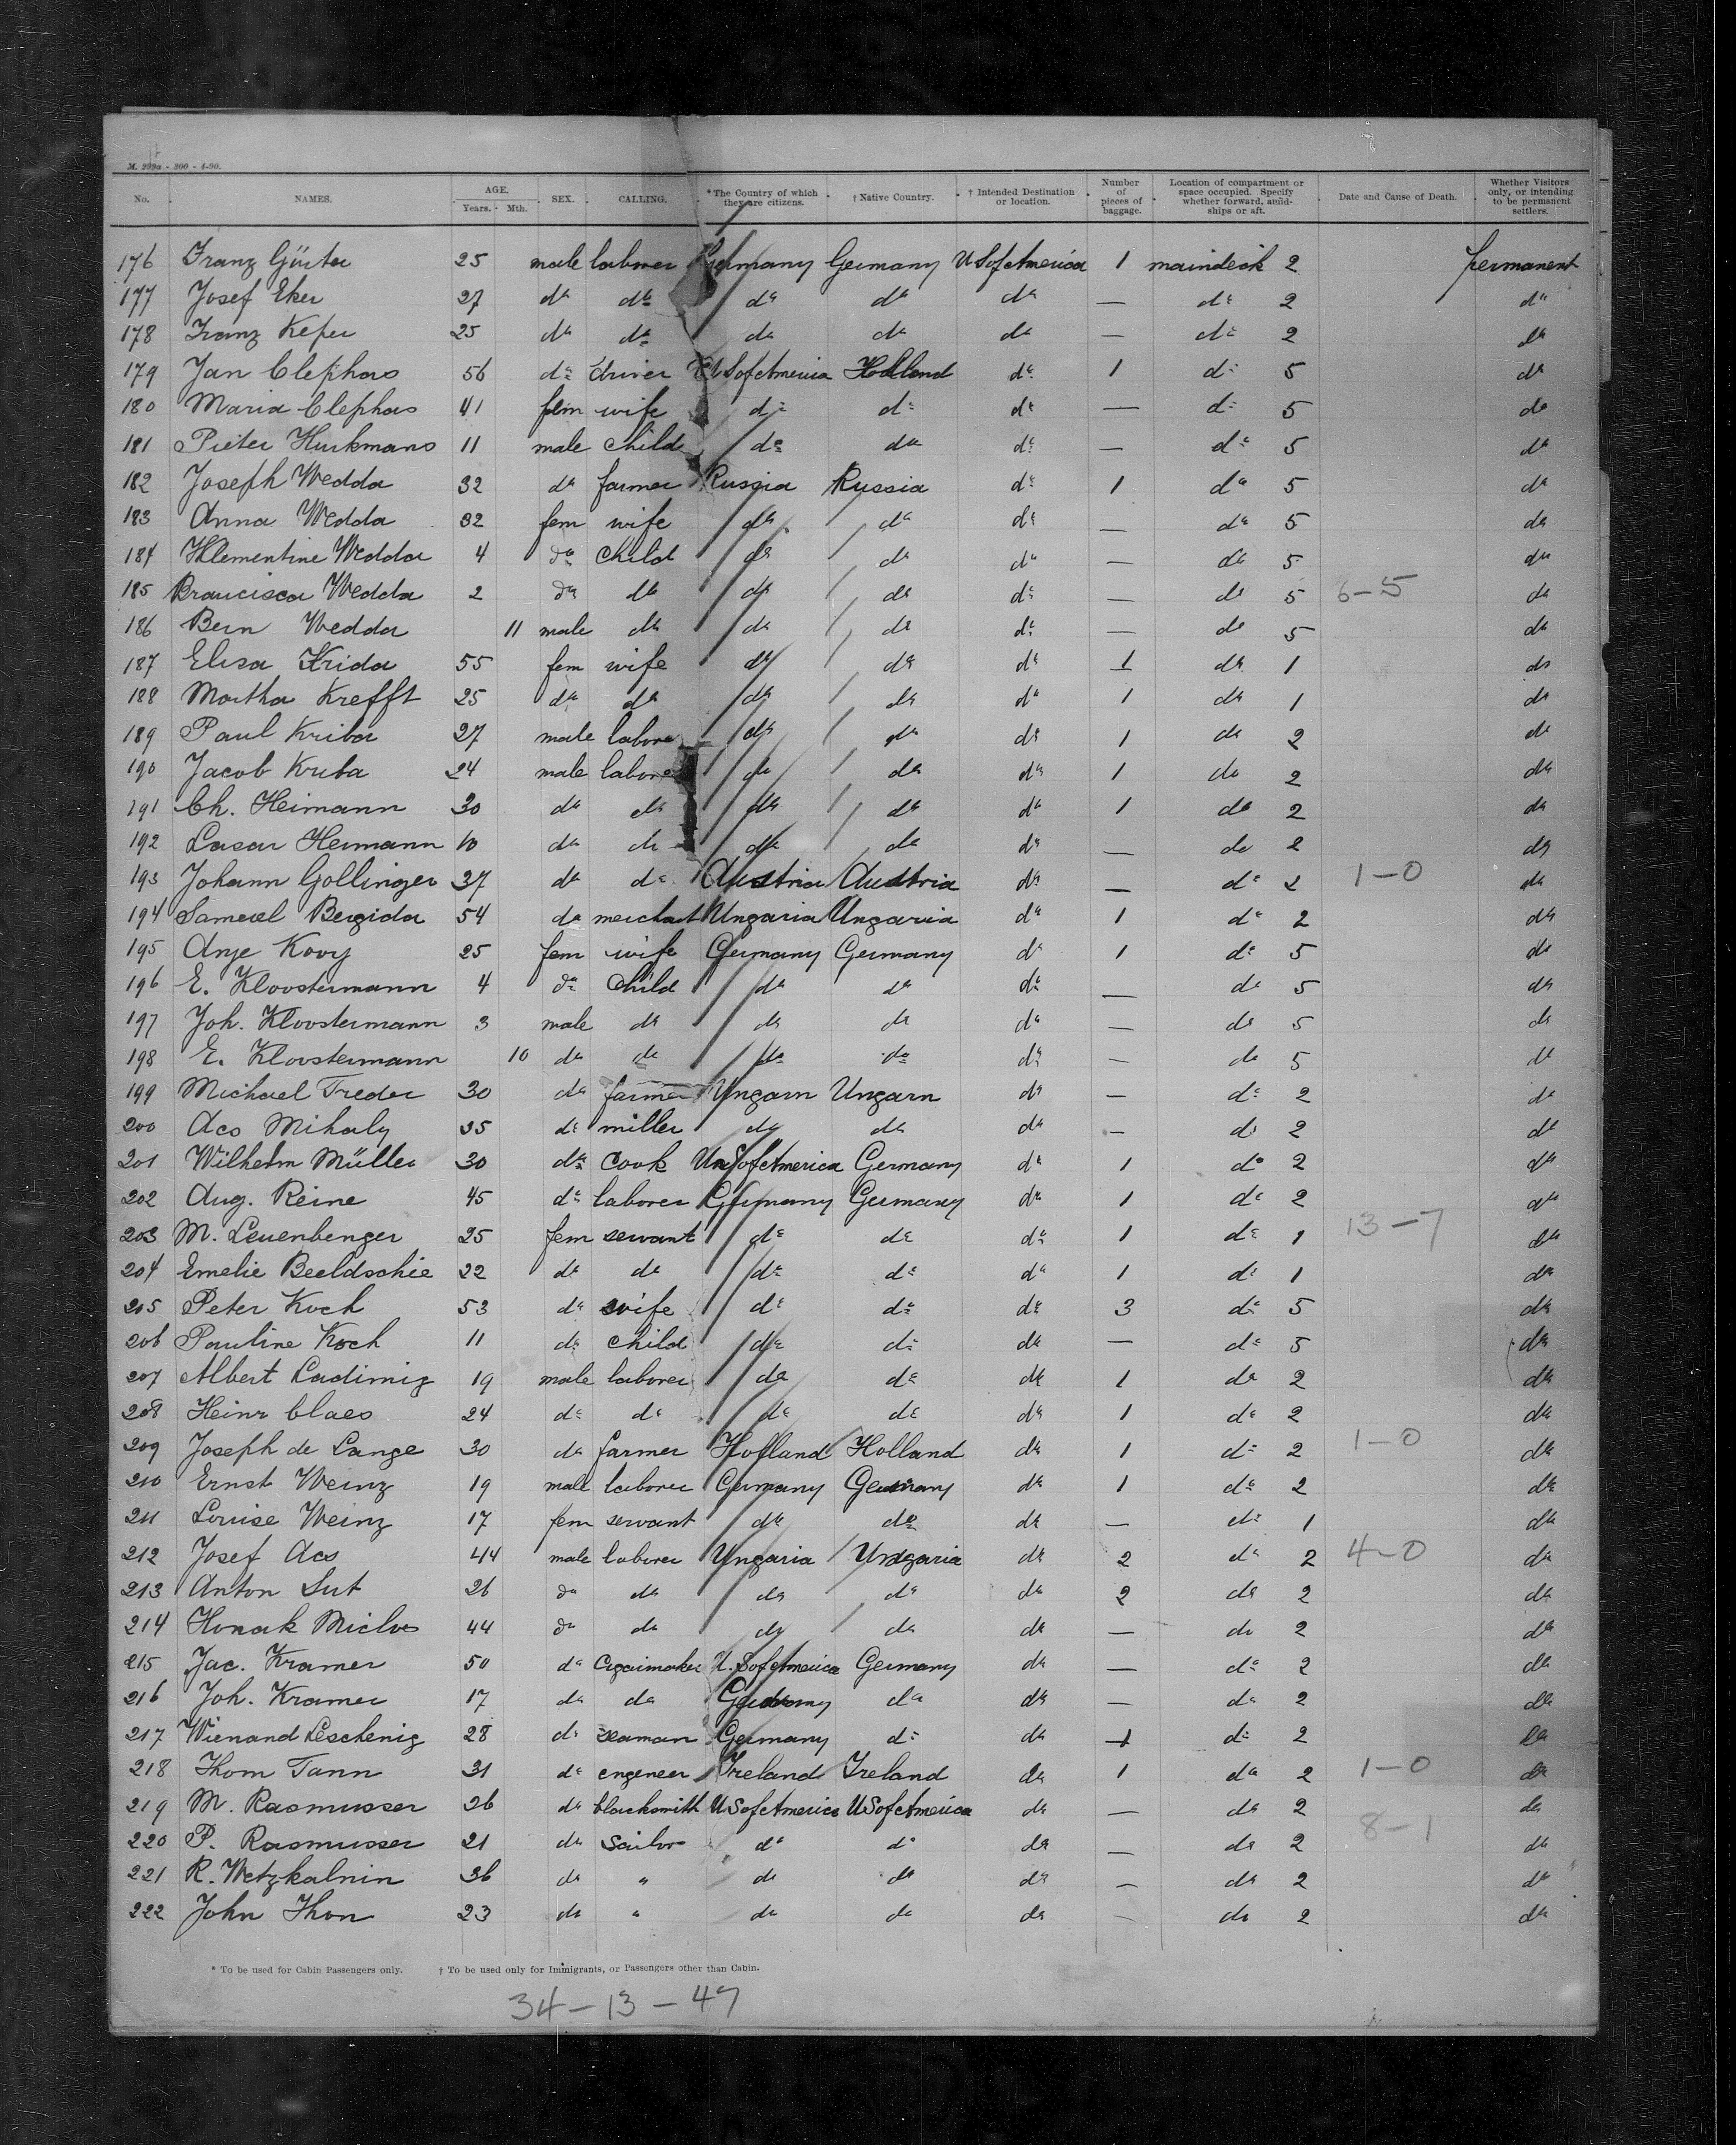 M. 299a - 300 - 4-90.
No. NAMES. AGE. Years. Mth. SEX. CALLING. *The Country of which they are citizens. † Native Country. † Intended Destination or location. Number of pieces of baggage. Location of compartment or space occupied. Specify whether forward, amidships or aft. Date and Cause of Death. Whether Visitors only, or intending to be permanent settlers.
176 Franz Gürter 25 male laborer Germany Germany U S of America 1 maindeck 2 permanent
177 Josef Eker 27 do do do do do — do 2 do
178 Franz Kefer 25 do do do do do — do 2 do
179 Jan Clephas 56 do driver U S of America Holland do 1 do 5 do
180 Maria Clephas 41 fem wife do do do — do 5 do
181 Pieter Hurkmans 11 male child do do do — do 5 do
182 Joseph Wedda 32 do farmer Russia Russia do 1 do 5 do
183 Anna Wedda 32 fem wife do do do — do 5 do
184 Klementine Wedda 4 do child do do do — do 5 do
185 Brancisca Wedda 2 do do do do do — do 5 6-5 do
186 Bern Wedda 11 male do do do do — do 5 do
187 Elisa Krida 55 fem wife do do do 1 do 1 do
188 Martha Krefft 25 do do do do do 1 do 1 do
189 Paul Kriba 27 male labore do do do 1 do 2 do
190 Jacob Kriba 24 male labore do do do 1 do 2 do
191 Ch. Heimann 30 do do do do do 1 do 2 do
192 Lasar Hermann 10 do do do do do — do 2 do
193 Johann Gollinger 37 do do Austria Austria do — do 2 1-0 do
194 Samuel Bergida 54 do merchant Ungaria Ungaria do 1 do 2 do
195 Anje Kooy 25 fem wife Germany Germany do 1 do 5 do
196 E. Kloostermann 4 do child do do do — do 5 do
197 Joh. Kloostermann 3 male do do do do — do 5 do
198 E. Kloostermann 10 do do do do do — do 5 do
199 Michael Treder 30 do farmer Ungarn Ungarn do — do 2 do
200 Acs Mihaly 35 do miller do do do — do 2 do
201 Wilhelm Müller 30 do Cook Un S of America Germany do 1 do 2 do
202 Aug. Reine 45 do laborer Germany Germany do 1 do 2 do
203 M. Leuenberger 25 fem servant do do do 1 do 1 13-7 do
204 Emelie Beeldschie 22 do do do do do 1 do 1 do
205 Peter Koch 53 do wife do do do 3 do 5 do
206 Pauline Koch 11 do child do do do — do 5 do
207 Albert Ladimig 19 male laborer do do do 1 do 2 do
208 Heinr Claes 24 do do do do do 1 do 2 do
209 Joseph de Lange 30 do farmer Holland Holland do 1 do 2 1-0 do
210 Ernst Weinz 19 male laborer Germany Germany do 1 do 2 do
211 Louise Weinz 17 fem servant do do do — do 1 do
212 Josef Acs 44 male laborer Ungaria Ungaria do 2 do 2 4-0 do
213 Anton Sut 26 do do do do do 2 do 2 do
214 Honak Miclos 44 do do do do do — do 2 do
215 Jac. Kramer 50 do Cigarmaker U. S of America Germany do — do 2 do
216 Joh. Kramer 17 do do Germany do do — do 2 do
217 Wienand Leschenig 28 do seaman Germany do do 1 do 2 do
218 Thom Tann 31 do engeneer Ireland Ireland do 1 do 2 1-0 do
219 M. Rasmusser 26 do blacksmith U S of America U S of America do — do 2 do
220 P. Rasmusser 21 do Sailor do do do — do 2 8-1 do
221 R. Wetzkalnin 36 do " do do do — do 2 do
222 John Thon 23 do " do do do — do 2 do
* To be used for Cabin Passengers only. † To be used only for Immigrants, or Passengers other than Cabin.
34-13-47